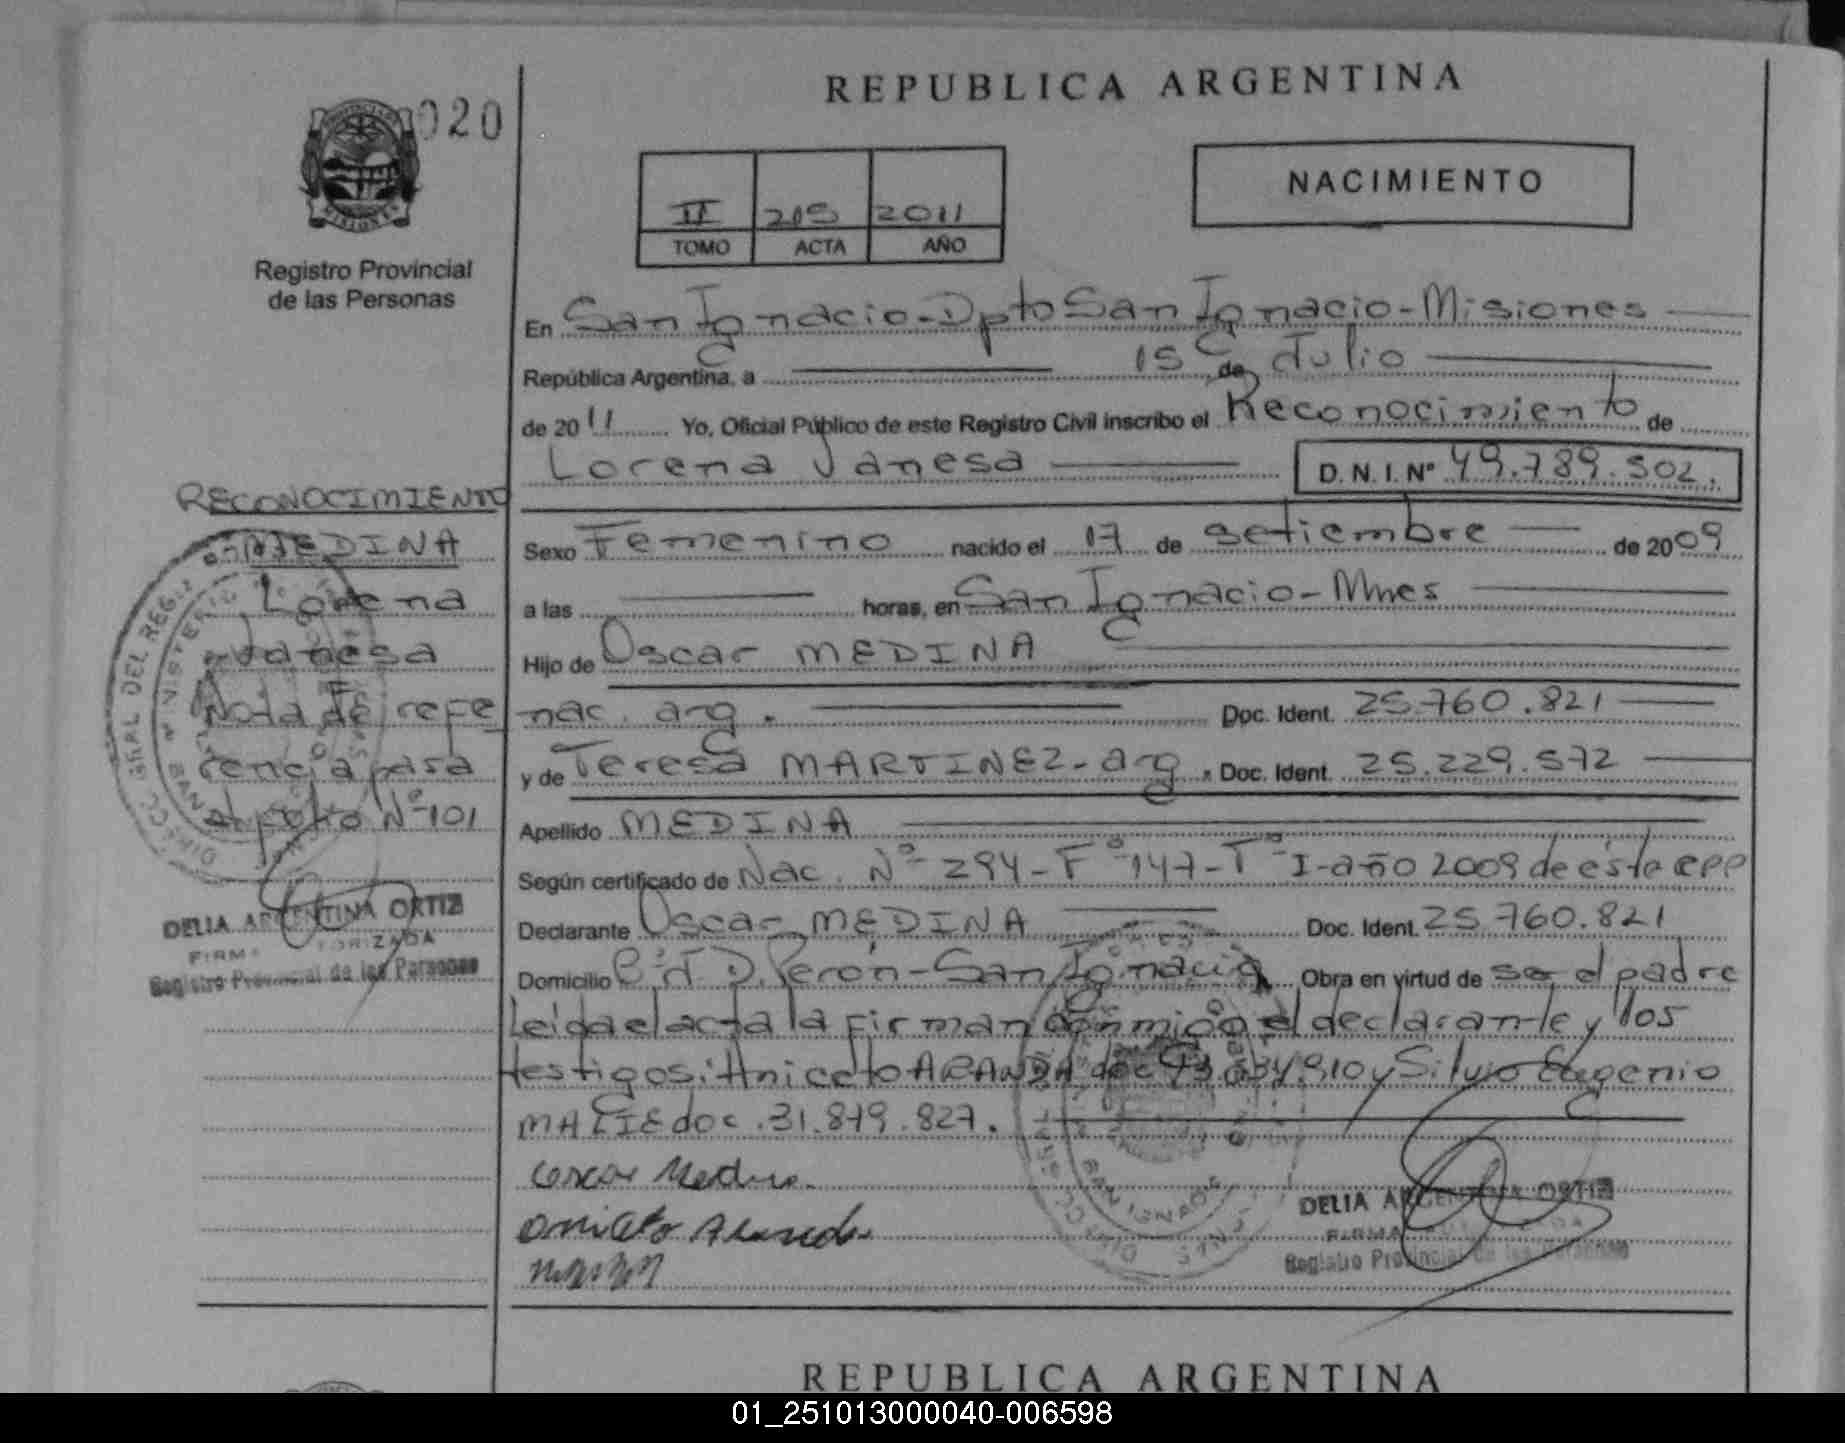 020
REPUBLICA ARGENTINA
NACIMIENTO
II 215 2011
TOMO ACTA AÑO
Registro Provincial
de las Personas
En San Ignacio-Dpto San Ignacio-Misiones
República Argentina, a 15 de Julio
de 2011 Yo, Oficial Público de este Registro Civil inscribo el Reconocimiento de
Lorena Vanesa D.N.I. Nº 49.789.502.
Sexo Femenino nacido el 17 de setiembre de 2009
a las horas, en San Ignacio-Mnes
Hijo de Oscar MEDINA
nac. arg. Doc. Ident. 25.760.821
y de Teresa MARTINEZ-arg. Doc. Ident. 25.229.572
Apellido MEDINA
Según certificado de Nac. Nº 294-Fº147-Tº I-año 2009 de este RPP
Declarante Oscar MEDINA Doc. Ident. 25.760.821
Domicilio Bº J.D.Perón-San Ignacio Obra en virtud de ser el padre
Leida el acta la firman conmigo el declarante y los
testigos: Aniceto ARANDA doc y Silvio Eugenio
doc. 31.849.827.
Oscar Medina
RECONOCIMIENTO
MEDINA
Lorena
Vanesa
Nota de refe
rencia pasa
al folio Nº 101
DELIA ARGENTINA ORTIZ
FIRMA AUTORIZADA
Registro Provincial de las Personas
DELIA ARGENTINA ORTIZ
FIRMA AUTORIZADA
Registro Provincial de las Personas
REPUBLICA ARGENTINA
01_251013000040-006598